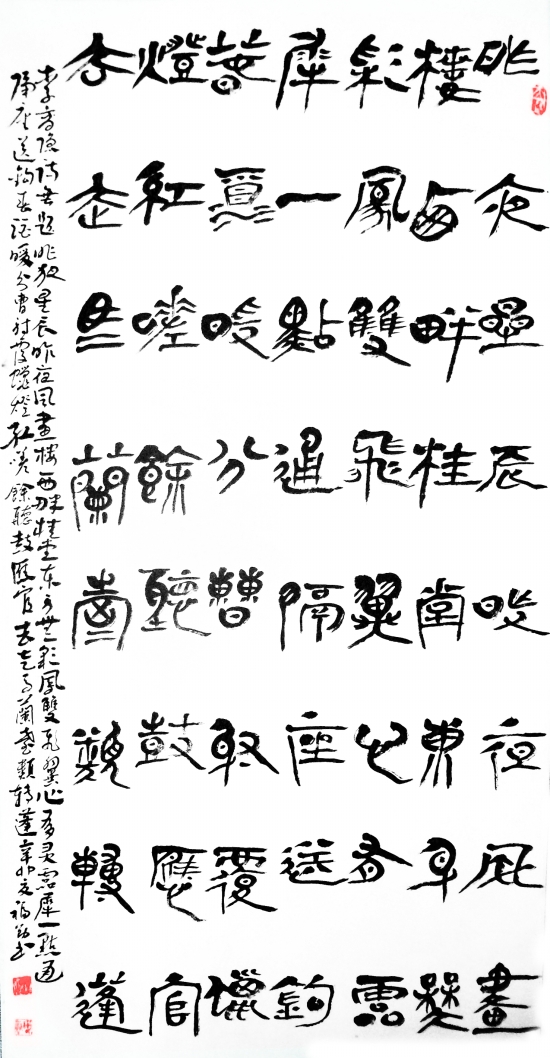 昨夜星辰昨夜風畫
樓西畔桂堂東身無
彩鳳雙飛翼心有靈
犀一點通隔座送鈎
春酒暖分曹射覆蠟
燈紅嗟餘聽鼓應官
去走馬蘭臺類轉蓬
李商隱詩無題昨夜星辰昨夜風畫樓西畔桂堂东身無彩鳳雙飛翼心有灵犀一點通
隔座送鈎春酒暖分曹射覆蠟燈紅嗟餘聽鼓應官去走馬蘭臺類轉蓬辛卯夏福書